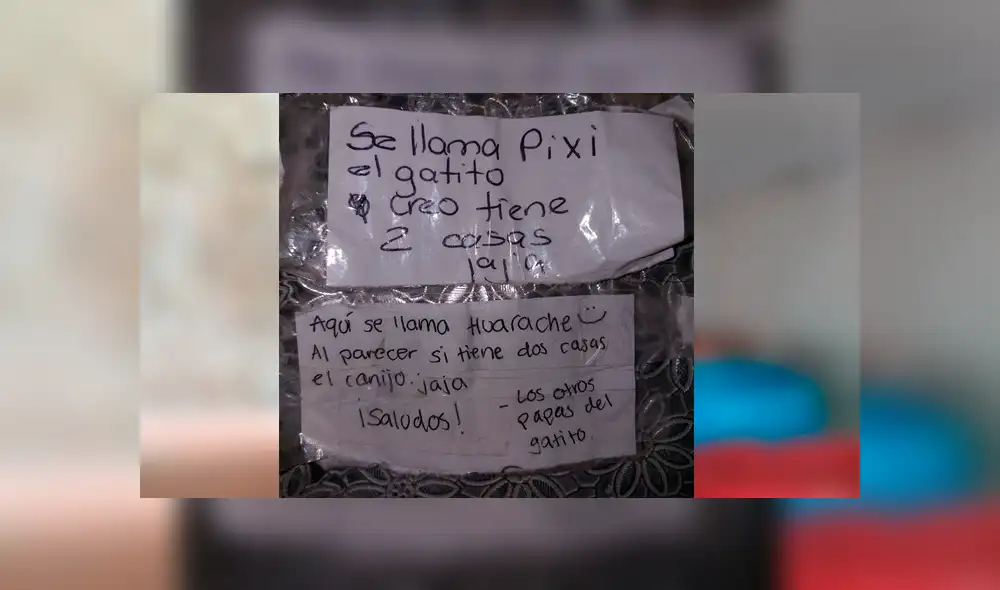 Se llama Pixi
el gatito
y creo tiene
2 casas
jaja
Aquí se llama Huarache
Al parecer si tiene dos casas
el canijo. jaja
¡Saludos!
- Los otros
papas del
gatito.